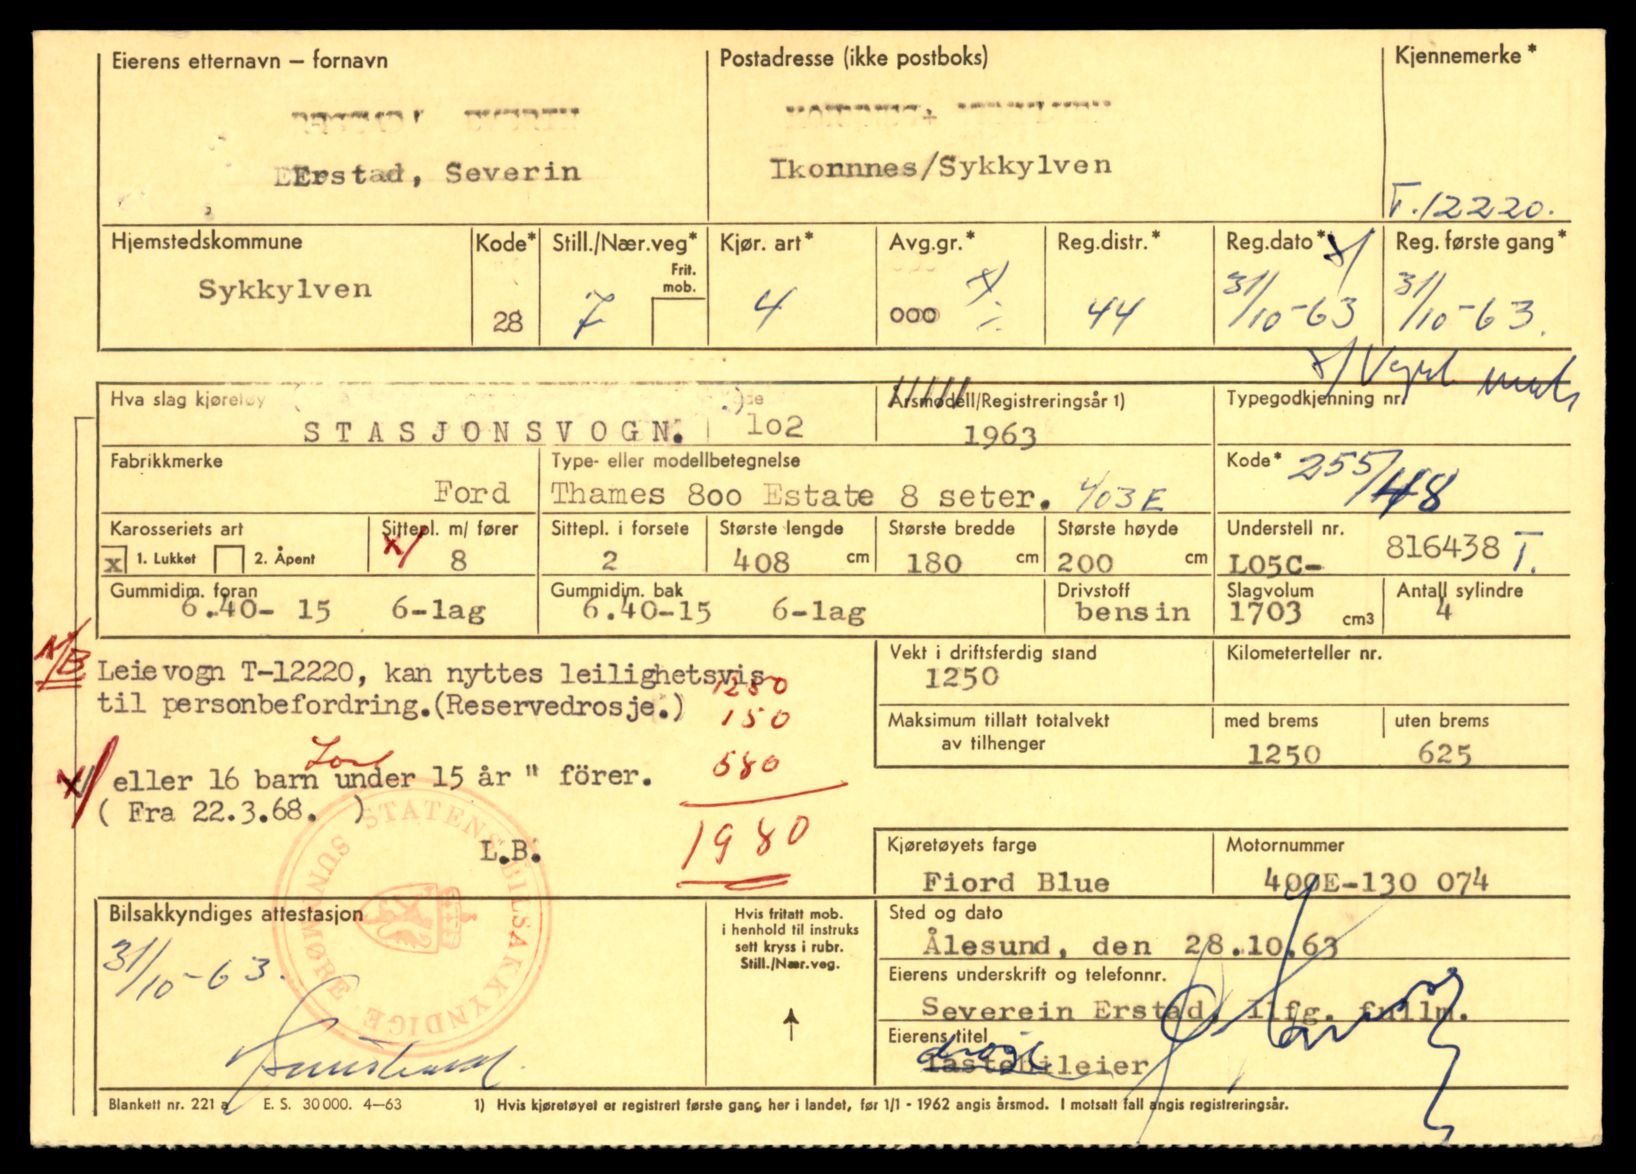 Eierens etternavn – fornavn
Postadresse (ikke postboks)
Kjennemerke *
EErstad, Severin
Ikornnes/Sykkylven
T.12220.
Hjemstedskommune
Kode*
Still./Nær.veg*
Frit. mob.
Kjør. art*
Avg.gr.*
Reg.distr.*
Reg.dato*
Reg. første gang*
Sykkylven
28
7
4
000
44
31/10-63
31/10-63.
Hva slag kjøretøy
Årsmodell/Registreringsår 1)
Typegodkjenning nr.
STASJONSVOGN.
102
1963
Fabrikkmerke
Type- eller modellbetegnelse
Kode*
255/48
Ford
Thames 800 Estate 8 seter. 403E
Karosseriets art
Sittepl. m/ fører
Sittepl. i forsete
Største lengde
Største bredde
Største høyde
Understell nr.
x 1. Lukket 2. Åpent
x/ 8
2
408 cm
180 cm
200 cm
L05C- 816438 T.
Gummidim. foran
Gummidim. bak
Drivstoff
Slagvolum
Antall sylindre
6.40- 15 6-lag
6.40-15 6-lag
bensin
1703 cm3
4
N/B
Leievogn T-12220, kan nyttes leilighetsvis
til personbefordring.(Reservedrosje.)
1250
150
580
1980
x/ eller 16 barn under 15 år " förer.
( Fra 22.3.68. )
L.B.
STATENS BILSAKKYNDIGE
SUNNMØRE
Vekt i driftsferdig stand
Kilometerteller nr.
1250
Maksimum tillatt totalvekt
av tilhenger
med brems
uten brems
1250
625
Kjøretøyets farge
Motornummer
Fiord Blue
400E-130 074
Bilsakkyndiges attestasjon
31/10-63.
Hvis fritatt mob.
i henhold til instruks
sett kryss i rubr.
Still./Nær.veg.
Sted og dato
Ålesund, den 28.10.63
Eierens underskrift og telefonnr.
Severein Erstad, Ilfg. fullm.
Eierens titel
drosje
lastebileier
Blankett nr. 221 a E. S. 30000. 4–63
1) Hvis kjøretøyet er registrert første gang her i landet, før 1/1 - 1962 angis årsmod. I motsatt fall angis registreringsår.